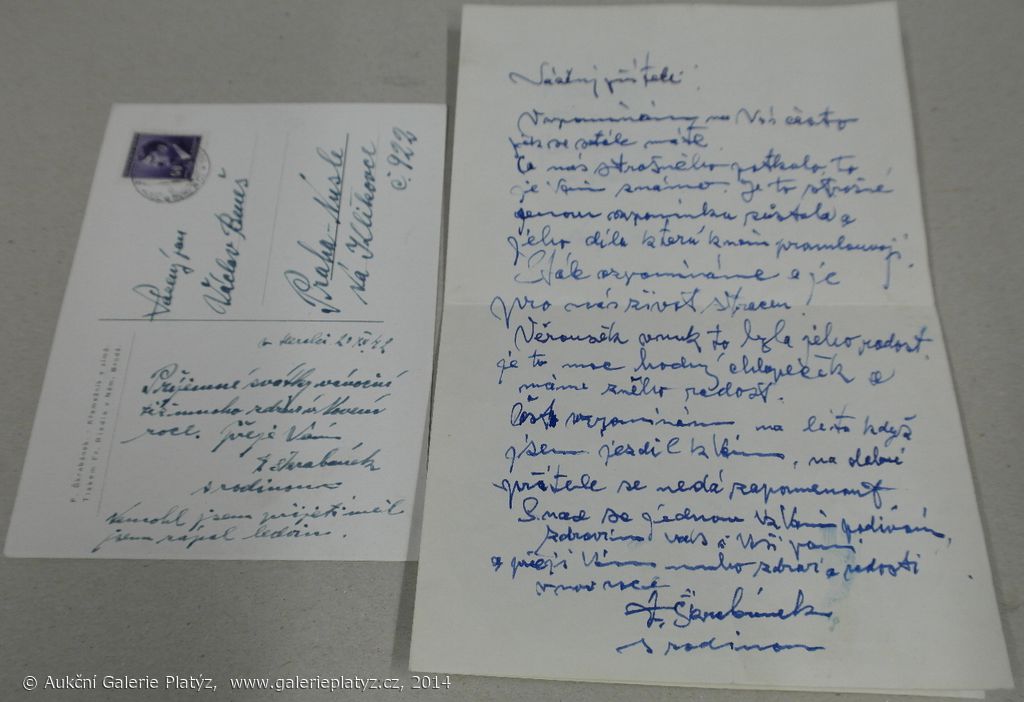 Vážený pan
Václav Beneš
Praha-Nusle
na Klikovce
č. 922
20 XII 42
Příjemné svátky vánoční
mnoho zdraví v Novém
roce. přeje Vám
F Škrabánek
s rodinou
Nemohl jsem přijeti měl
jsem zápal ledvin.
F. Škrabánek - Kameník v zimě
Tiskem Fr. Brodík v Něm. Brodě.
Vzácný příteli!
Vzpomínáme na Vás často
jak se stále máte
Co nás strašného potkalo, to
je Vám známo. Je to strašné
jenom vzpomínka zůstala a
jeho díla která k nám promlouvají.
Stále vzpomínáme a je
pro nás život ztracen.
Věroušek vnuk to byla jeho radost
je to moc hodný chlapeček a
máme z něho radost.
často vzpomínám na léta když
jsem jezdil k Vám, na dobré
přátele se nedá zapomenout
Snad se jednou k Vám podívám,
zdravím Vás i Vaši paní
a přeji Vám mnoho zdraví a radosti
v nov roce
F. Škrabánek
s rodinou
© Aukční Galerie Platýz, www.galerieplatyz.cz, 2014